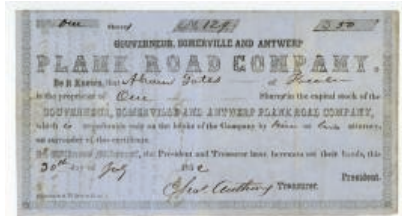 One Share No. 129. $50
GOUVERNEUR, SOMERVILLE AND ANTWERP
PLANK ROAD COMPANY.
Be it Known, that of
is the proprietor of One Share in the capital stock of the
GOUVERNEUR, SOMERVILLE AND ANTWERP PLANK ROAD COMPANY,
which is transferable only on the books of the Company by him or his attorney,
on surrender of this certificate.
the President and Treasurer have hereunto set their hands, this
30th day of July 185
President.
Anthony Treasurer.